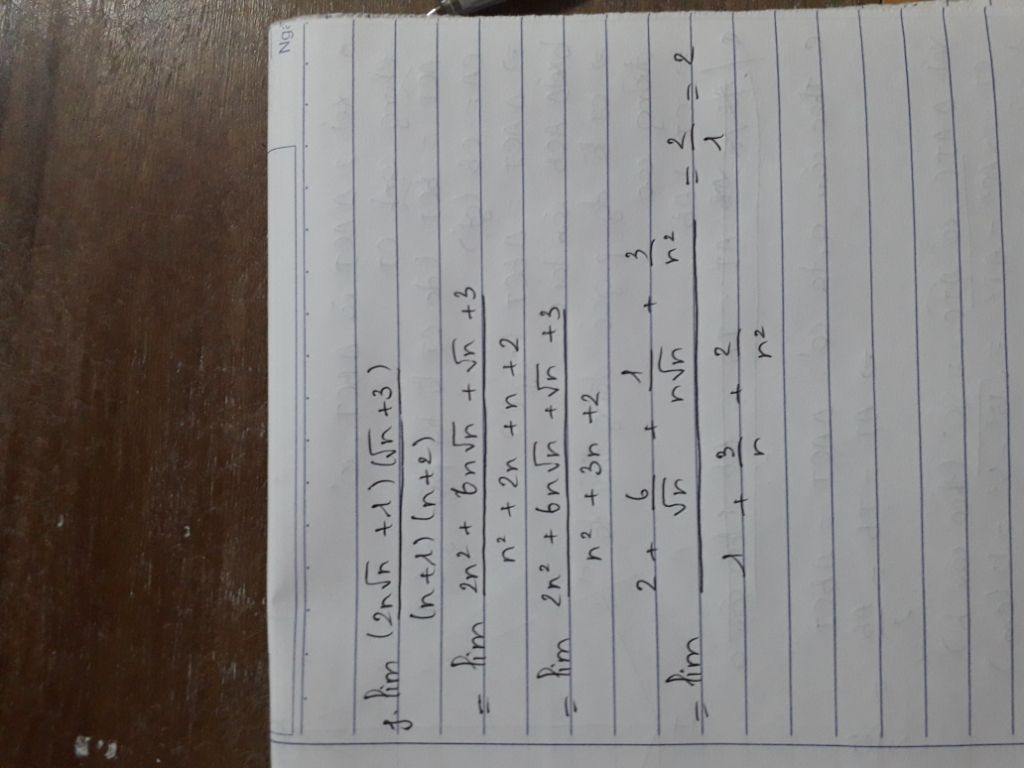 f. lim (2n√n + 1)(√n + 3) / (n+1)(n+2)
= lim 2n² + 6n√n + √n + 3 / n² + 2n + n + 2
= lim 2n² + 6n√n + √n + 3 / n² + 3n + 2
= lim 2 + 6/√n + 1/n√n + 3/n² / 1 + 3/n + 2/n² = 2/1 = 2